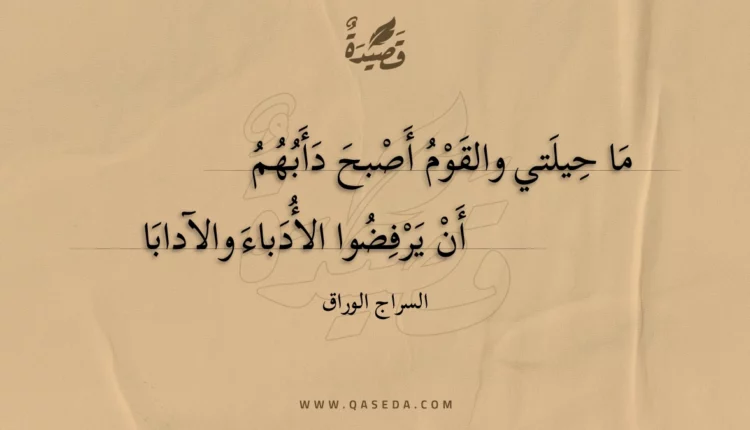 قَصِيْدَةٌ
مَا حِيلَتي والقَوْمُ أَصْبحَ دَأَبُهُمُ
أَنْ يَرْفِضُوا الأُدَباءَ والآدابَا
السراج الوراق
WWW.QASEDA.COM